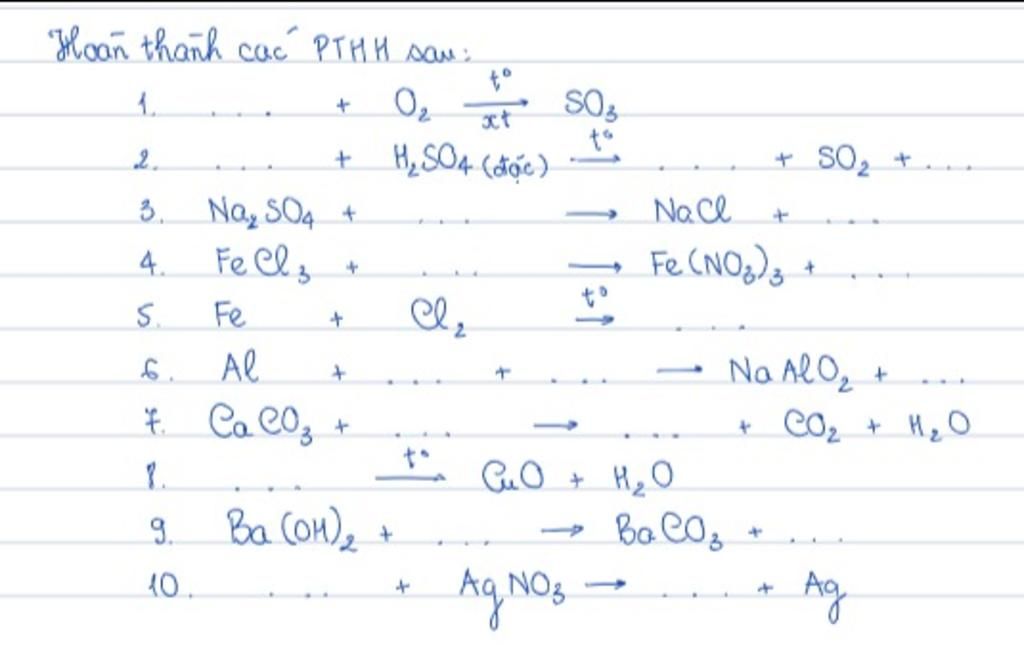 Hoàn thành các PTHH sau:
1. .... + O₂ —t°/xt→ SO₃
2. .... + H₂SO₄ (đặc) —t°→ .... + SO₂ + ...
3. Na₂SO₄ + .... → NaCl + ....
4. FeCl₃ + .... → Fe(NO₃)₃ + ....
5. Fe + Cl₂ —t°→ ....
6. Al + .... + .... → NaAlO₂ + ...
7. CaCO₃ + .... → .... + CO₂ + H₂O
8. .... —t°→ CuO + H₂O
9. Ba(OH)₂ + .... → BaCO₃ + ....
10. .... + AgNO₃ → .... + Ag